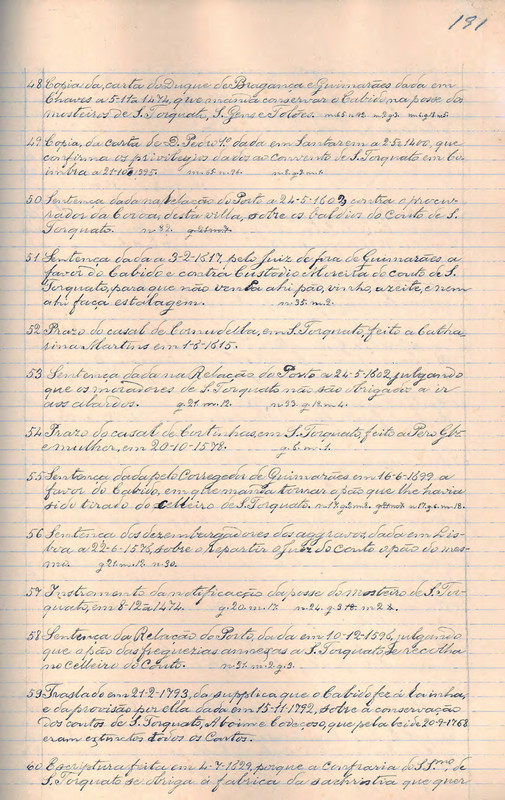 191
48 Copia da carta do Duque de Bragança e Guimarães dada em
Chaves a 5-11-1474, que manda conservar o Cabido na posse dos
mosteiros de S. Torquato, S. Gens e Toloes.
49 Copia da carta de D. Pedro 1.º dada em Santarem a 2-5-1400, que
confirma os privilegios dados ao convento de S. Torquato em Co-
imbra a 21-10-1395. n. 65. m. 96.
50 Sentença dada na Relação do Porto a 24-5-1602, contra o procu-
rador da Coroa, desta villa, sobre os baldios do Couto de S.
Torquato. n. 82.
51 Sentença dada a 3-2-1617, pelo Juiz de fóra de Guimarães, a
favor do Cabido e contra Custodio Moreira do couto de S.
Torquato, para que não venda ahi pão, vinho, azeite, e nem
ahi faça estalagem. n. 35. m. 2.
52 Prazo do casal de Cornudella, em S. Torquato, feito a Catha-
rina Martins em 1-8-1615.
53 Sentença dada na Relação do Porto a 24-5-1602 julgando
que os moradores de S. Torquato não são obrigados a ir
aos alardos. g. 21. m. 12. n. 23. g. 18. m. 4.
54 Prazo do casal de Cortinhas, em S. Torquato, feito a Pero Glz
e mulher, em 20-10-1578. g. 6. m. 1.
55 Sentença dada pelo Corregedor de Guimarães em 16-6-1699 a
favor do Cabido, em que manda tornar o pão que lhe havia
sido tirado do celleiro de S. Torquato.
56 Sentença dos dezembargadores dos aggravos, dada em Lis-
boa a 22-6-1576, sobre o repartir o Juiz do Couto o pão do mes-
mo. g. 21. m. 12. n. 30.
57 Instromento da notificação da posse do mosteiro de S. Tor-
quato, em 8-12-1474. g. 20. m. 17. n. 24.
58 Sentença da Relação do Porto, dada em 10-12-1596, julgando
que o pão das freguezias annexas a S. Torquato se recolha
no celleiro do Couto. n. 36. m. 2. g. 9.
59 Traslado em 21-2-1793, da supplica que o Cabido fez á Rainha,
e da provisão por ella dada em 15-11-1792, sobre a conservação
dos coutos de S. Torquato, Aboim e Codeçoso, que pela lei de 20-9-1768
eram extinctos todos os Coutos.
60 Escriptura feita em 4-7-1629, porque a confraria do S.S.mo de
S. Torquato se obriga á fabrica da sachristia que quer